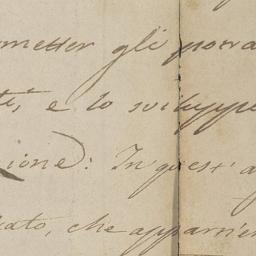 metter gli potra
tà, e lo svilupp
zione: In quest' a
cato, che apparrien